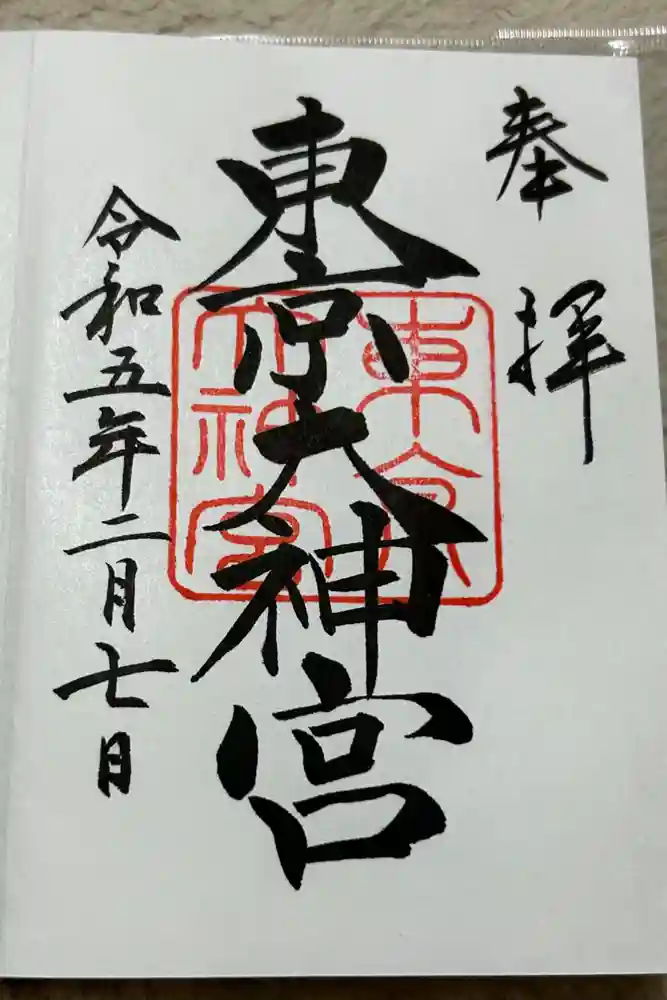 奉拝
東京大神宮
東京
大神宮
令和五年二月七日